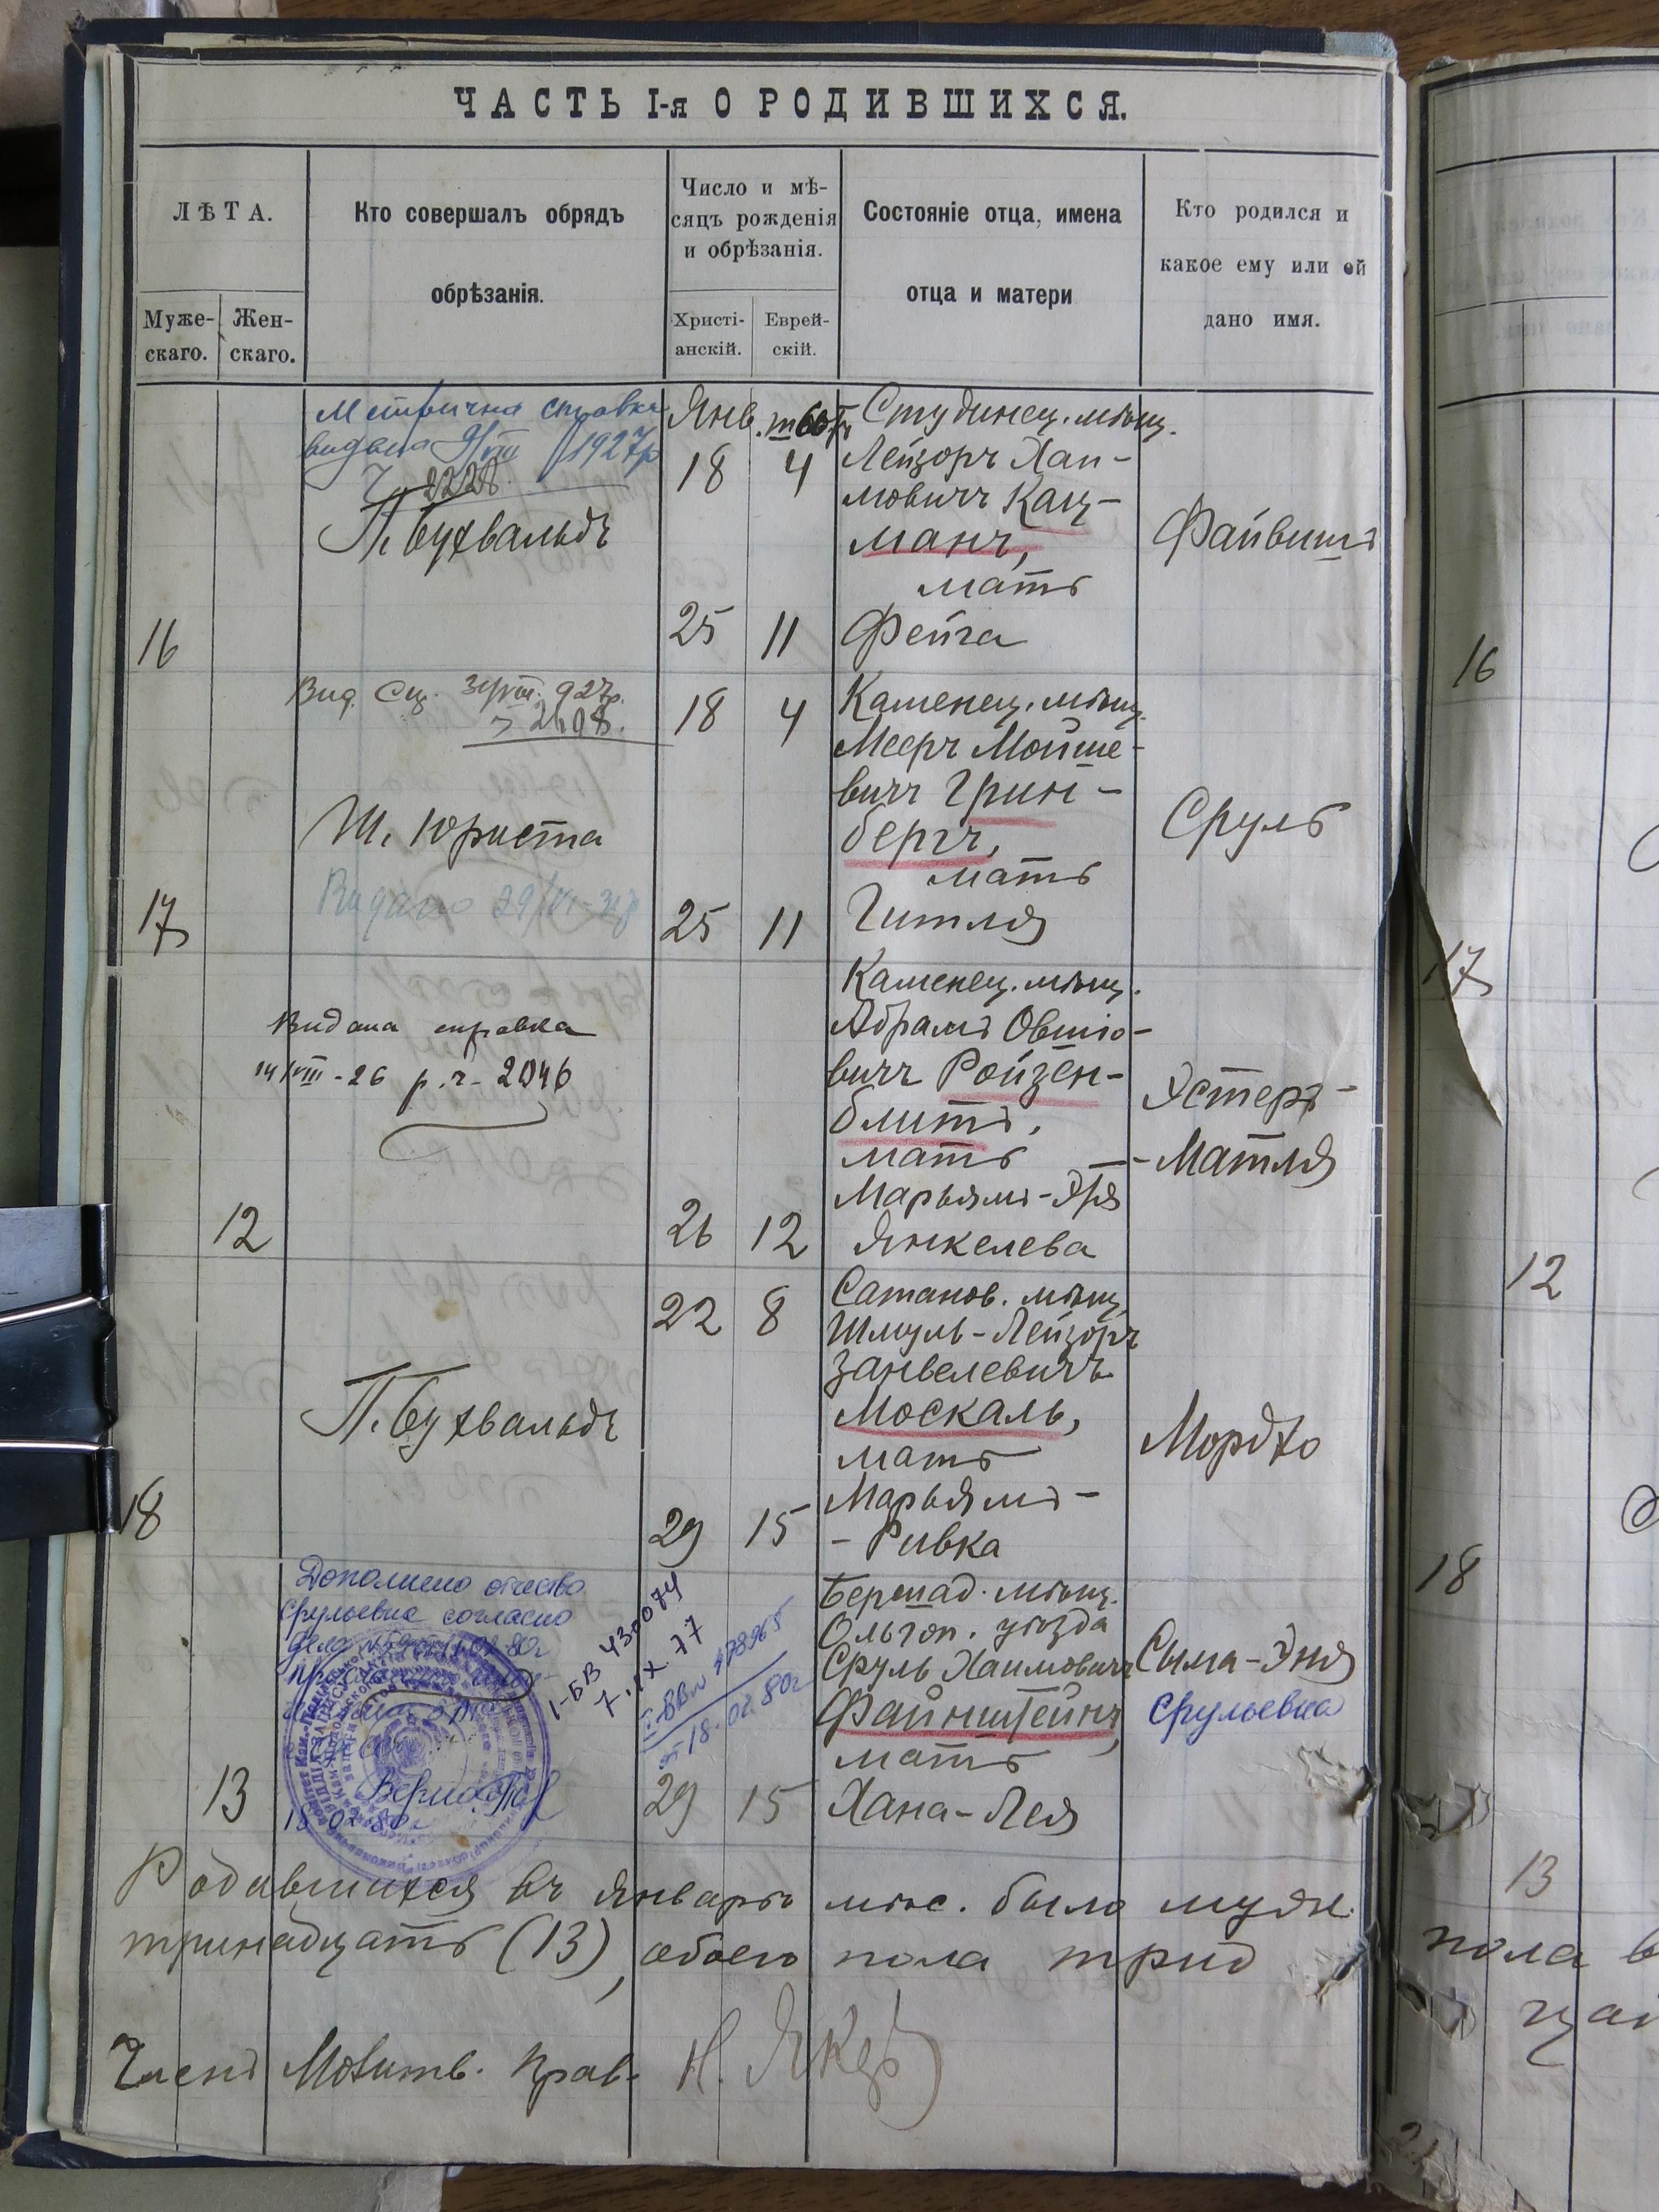 ЧАСТЬ I-я О РОДИВШИХСЯ.
ЛѢТА.
Муже-
скаго.
Жен-
скаго.
Кто совершалъ обрядъ
обрѣзанія.
Число и мѣ-
сяцъ рожденія
и обрѣзанія.
Христі-
анскій.
Еврей-
скій.
Состояніе отца, имена
отца и матери
Кто родился и
какое ему или ей
дано имя.
Метрична справка
видана 1927р
2228.
П. Бухвальдъ
16
Янв.
18 4
25 11
Студинец. мѣщ.
Лейзоръ Хаи-
мовичъ Кац-
манъ,
мать
Фейга
Файвишъ
Вид. 927р.
2408.
Ш. Юриста
Видано
17
18 4
25 11
Каменец. мѣщ.
Мееръ Мойше-
вичъ Грин-
бергъ,
мать
Гитля
Сруль
Видана справка
14/VIII-26 р. ч- 2046
12
26 12
Каменец. мѣщ.
Абрамъ Овшіо-
вичъ Ройзен-
блитъ,
мать
Марьямъ-Эня
Янкелева
Эстеръ-
-Матля
П. Бухвальдъ
18
22 8
29 15
Сатанов. мѣщ.
Шмуль-Лейзоръ
Занвелевичъ
Москаль,
мать
Марьямъ-
-Ривка
Мордко
Дополнено отчество
Срульевна согласно
18 02 80г
I-БВ 430074
7.IX.77
478965
от 18.02.80г
13
29 15
Бершад. мѣщ.
Ольгоп. уѣзда
Сруль Хаимовичъ
Файнштейнъ,
мать
Хана-Лея
Сыма-Эня
Срульевна
Родившихся въ январѣ мѣс. было муж.
тринадцать (13), обоего пола трид
Членъ Молитв. Прав.
16
17
12
18
13
пола в